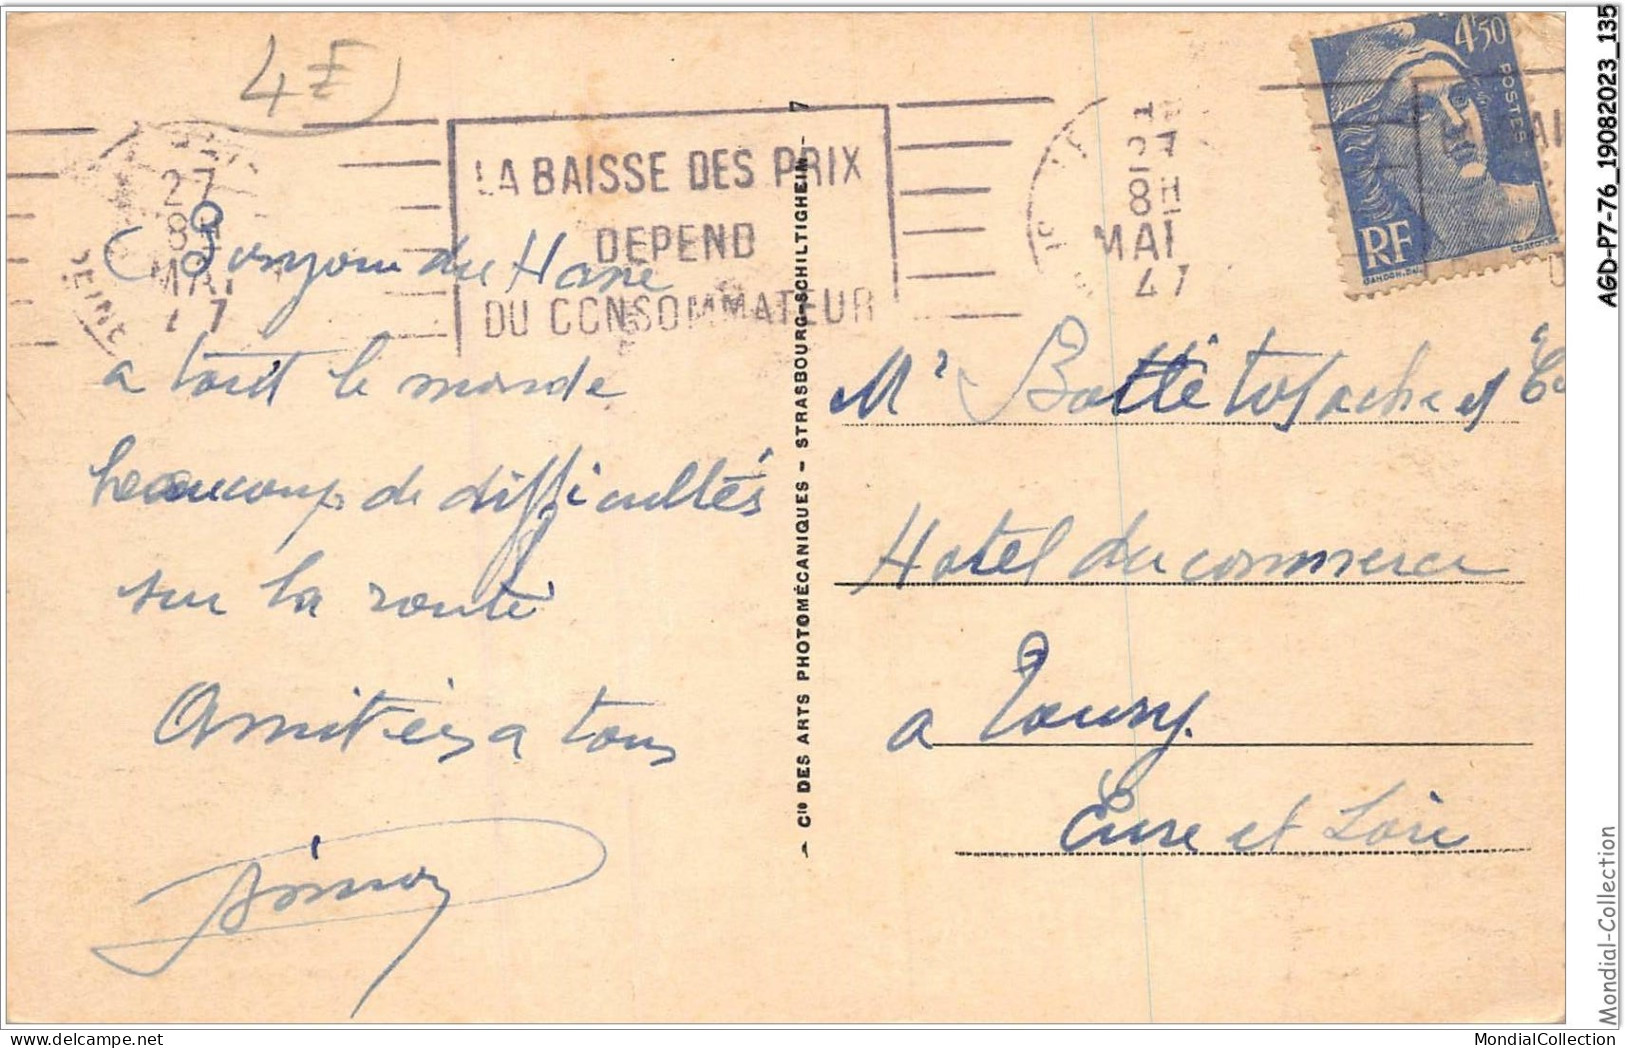 4 E
27
8H
MAI
47
EINE
LA BAISSE DES PRIX
DEPEND
DU CONSOMMATEUR
27
8H
MAI
47
4f50
POSTES
RF
GANDON.DEL
Bonjour du Havre
a tout le monde
beaucoup de difficultés
sur la route
Amitiés a tous
Simon
Cie DES ARTS PHOTOMÉCANIQUES - STRASBOURG-SCHILTIGHEIM - 7
Mr
Hotel du commerce
a Toury.
Eure et Loir
AGD-P7-76_19082023_135
Mondial-Collection
MondialCollection